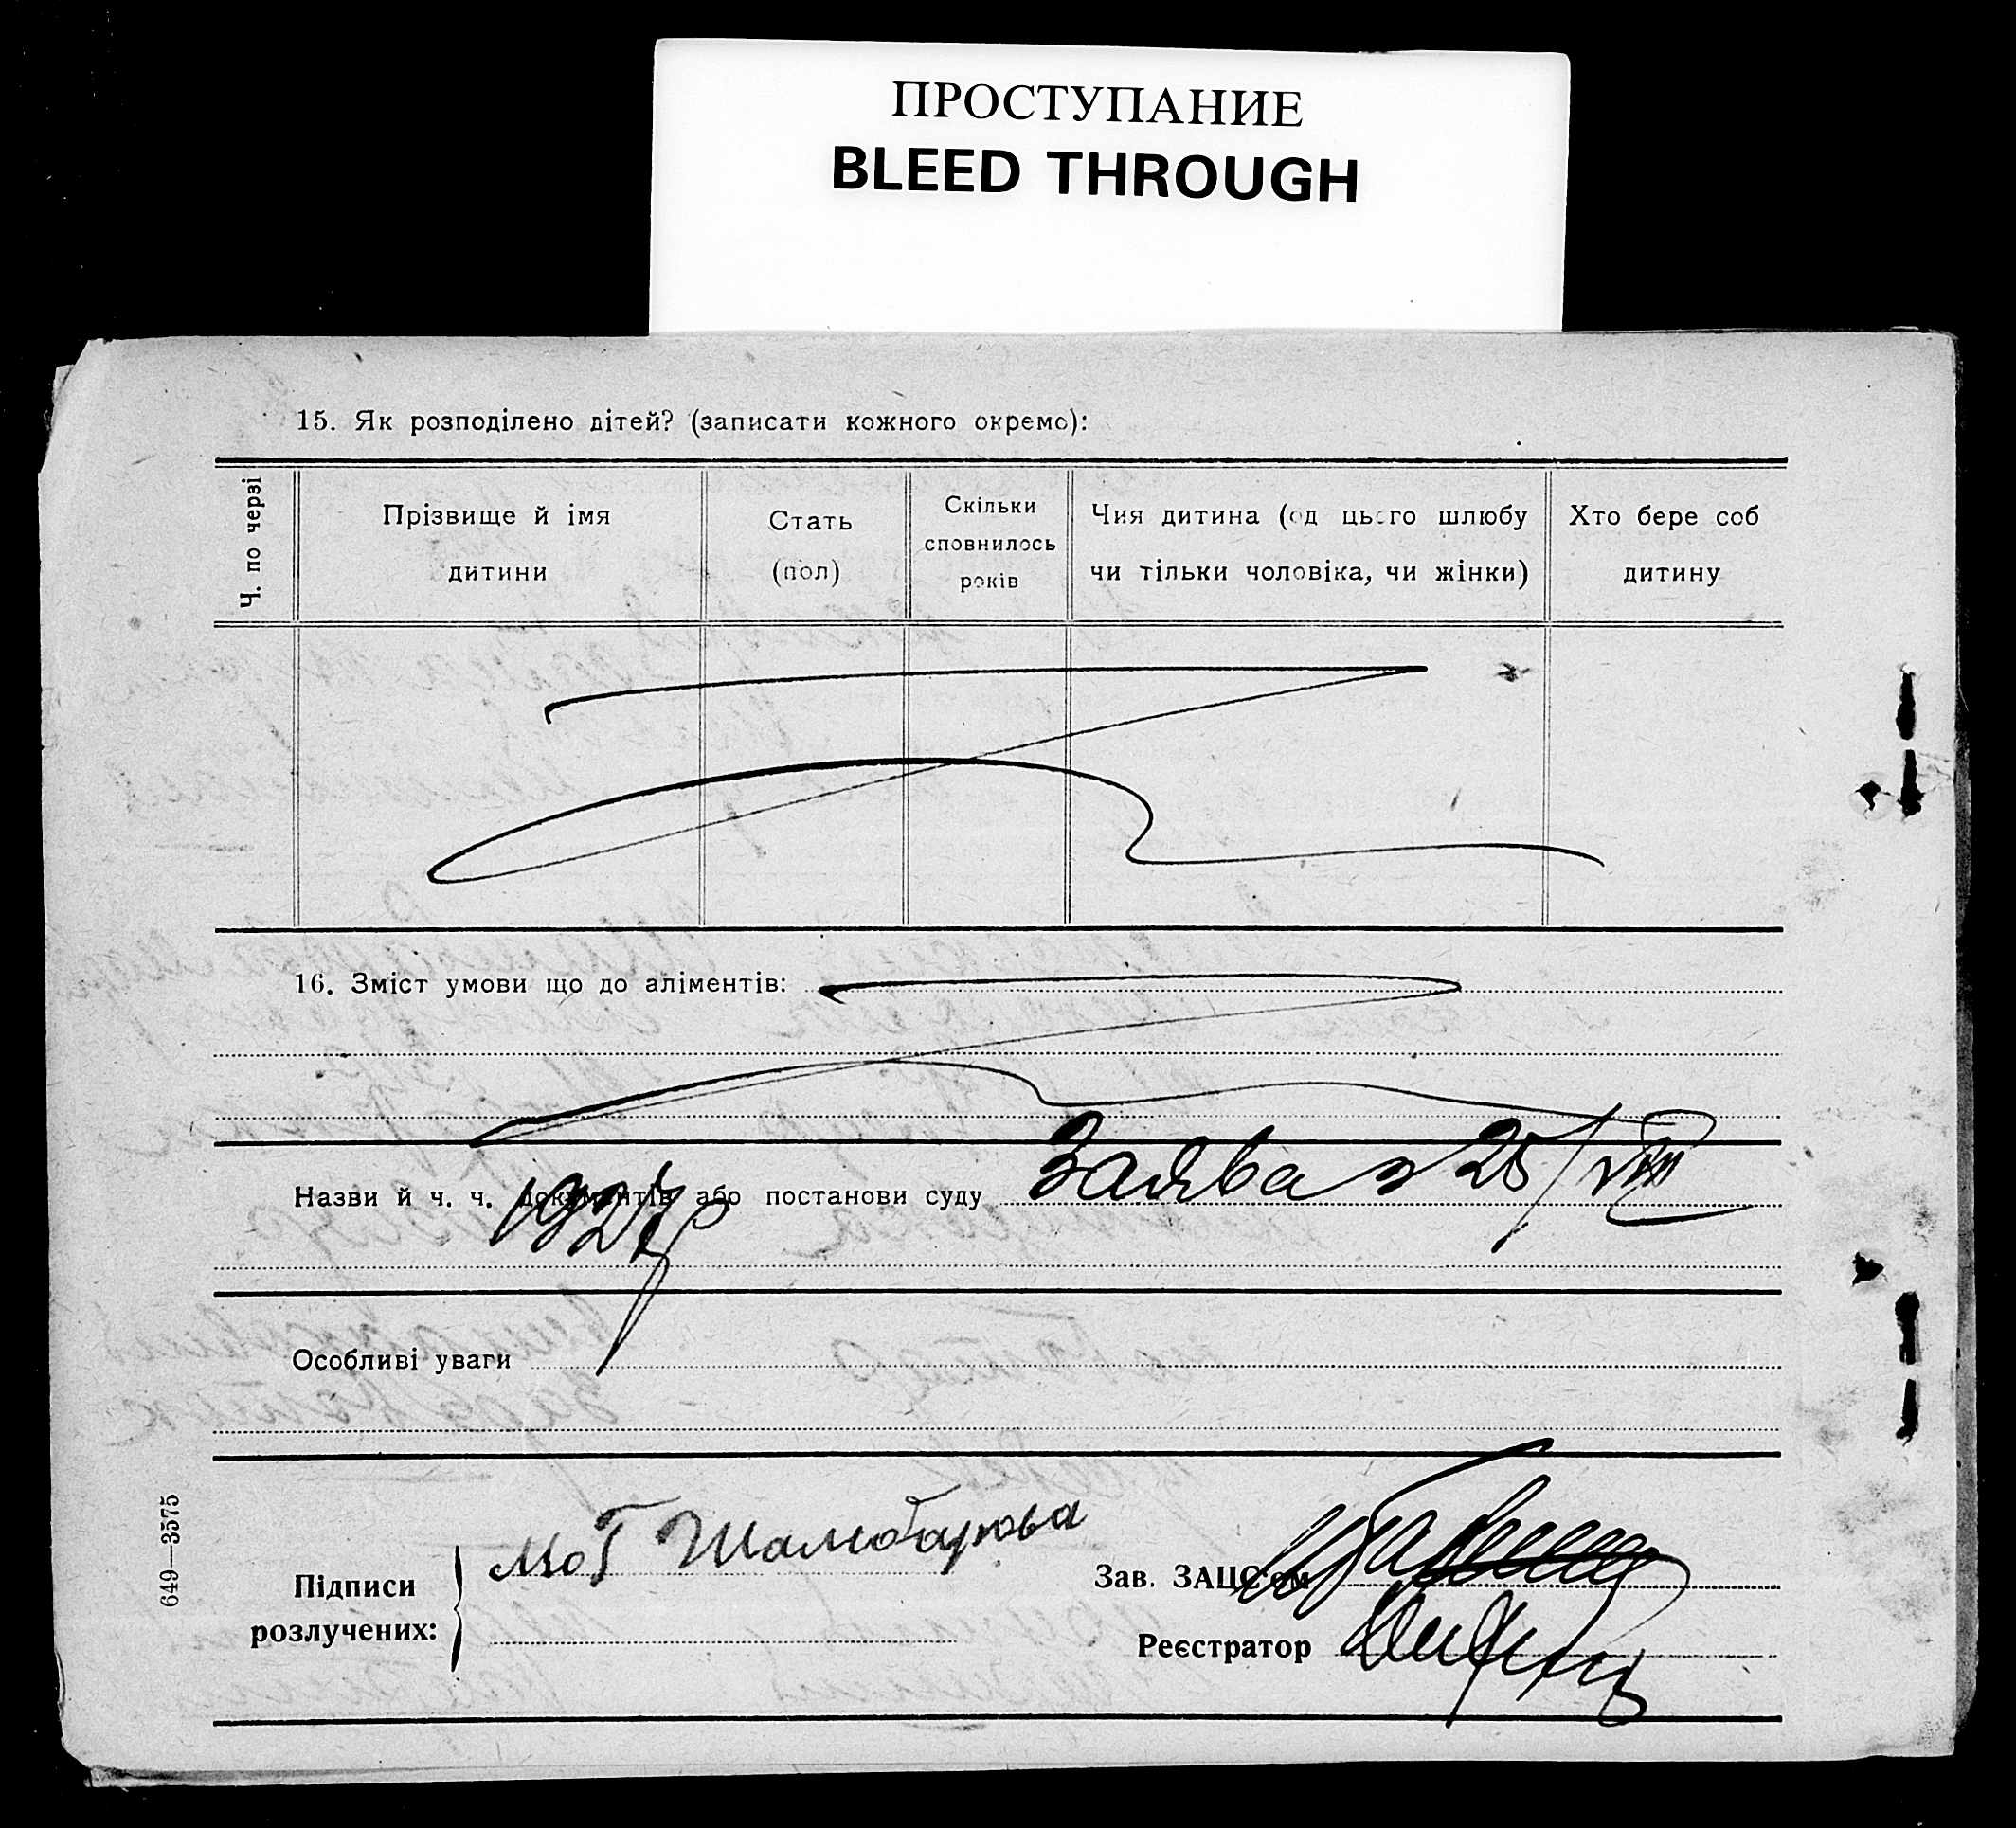 ПРОСТУПАНИЕ
BLEED THROUGH
15. Як розподілено дітей? (записати кожного окремо):
Ч. по черзі
Прізвище й імя
дитини
Стать
(пол)
Скільки
сповнилось
років
Чия дитина (од цього шлюбу
чи тільки чоловіка, чи жінки)
Хто бере соб
дитину
16. Зміст умови що до аліментів:
Назви й ч. ч. документів або постанови суду Заява з 25/VIII
1927р
Особливі уваги
649—3575
Підписи
розлучених:
Зав. ЗАЦС'ом
Реєстратор